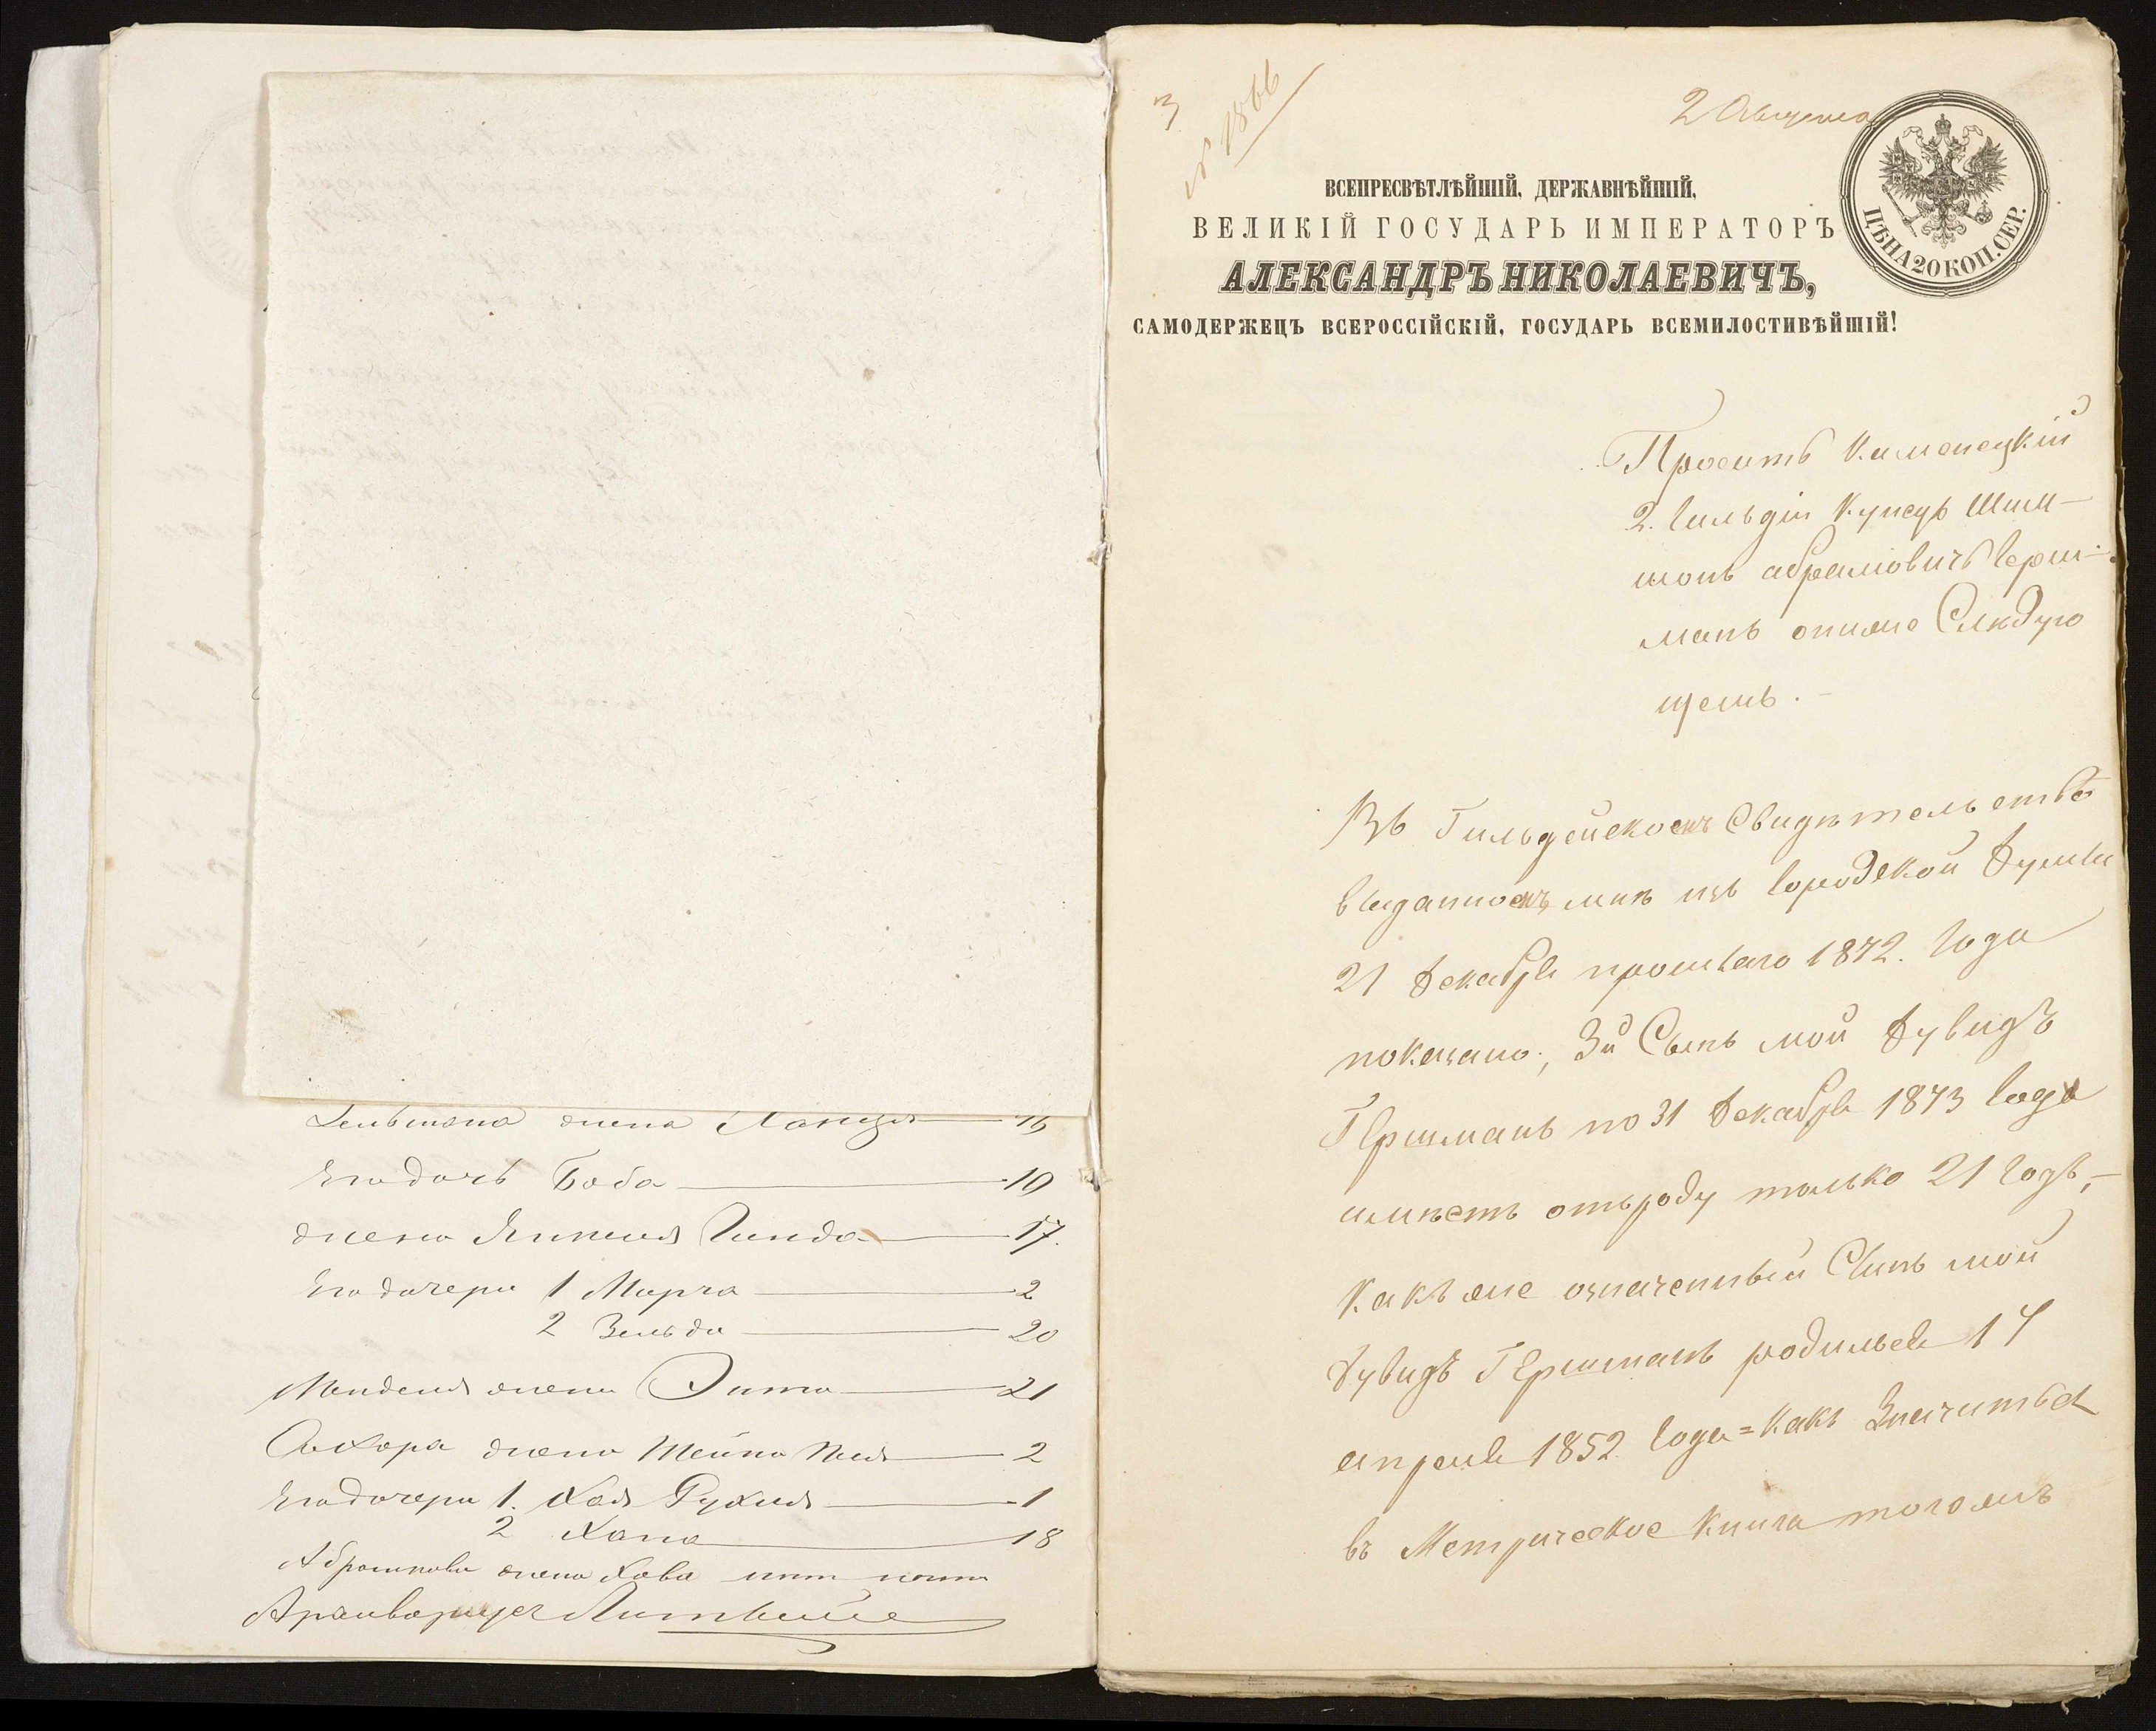 Зельмана жена Ханця 16
Его дочь Боба 19
жена Янкеля Гинда 17.
Его дочери 1 Мирча 2
2 Зельда 20
Менделя жена Энта 21
Сухора жена Шейна 2
Его дочери 1. Хая Рухля 1
2 Хана 18
Абрашкова жена Хава
Архиваріусъ
3
№ 1866
2 Августа
ЦѢНА 20 КОП. СЕР.
ВСЕПРЕСВѢТЛѢЙШІЙ, ДЕРЖАВНѢЙШІЙ,
ВЕЛИКІЙ ГОСУДАРЬ ИМПЕРАТОРЪ
АЛЕКСАНДРЪ НИКОЛАЕВИЧЪ,
САМОДЕРЖЕЦЪ ВСЕРОССІЙСКІЙ, ГОСУДАРЬ ВСЕМИЛОСТИВѢЙШІЙ!
Проситъ Каменецкій
2. Гильдіи Купецъ Шим-
шонъ абрамовичъ Герш-
манъ о ниже Слѣдую
щемъ.-
Въ Гильдейскомъ Свидѣтельствѣ
выданномъ мнѣ изъ Городской Думы
21 Декабря прошлаго 1872. Года
показано, 3й Сынъ мой Дувидъ
Гершманъ по 31 Декабря 1873 Года
имѣетъ отъ роду только 21 Годъ,-
Какъ же означенный Сынъ мой
Дувидъ Гершманъ родился 14
апреля 1852 Года = Какъ Значиться
въ Метрическое Книга тогожъ